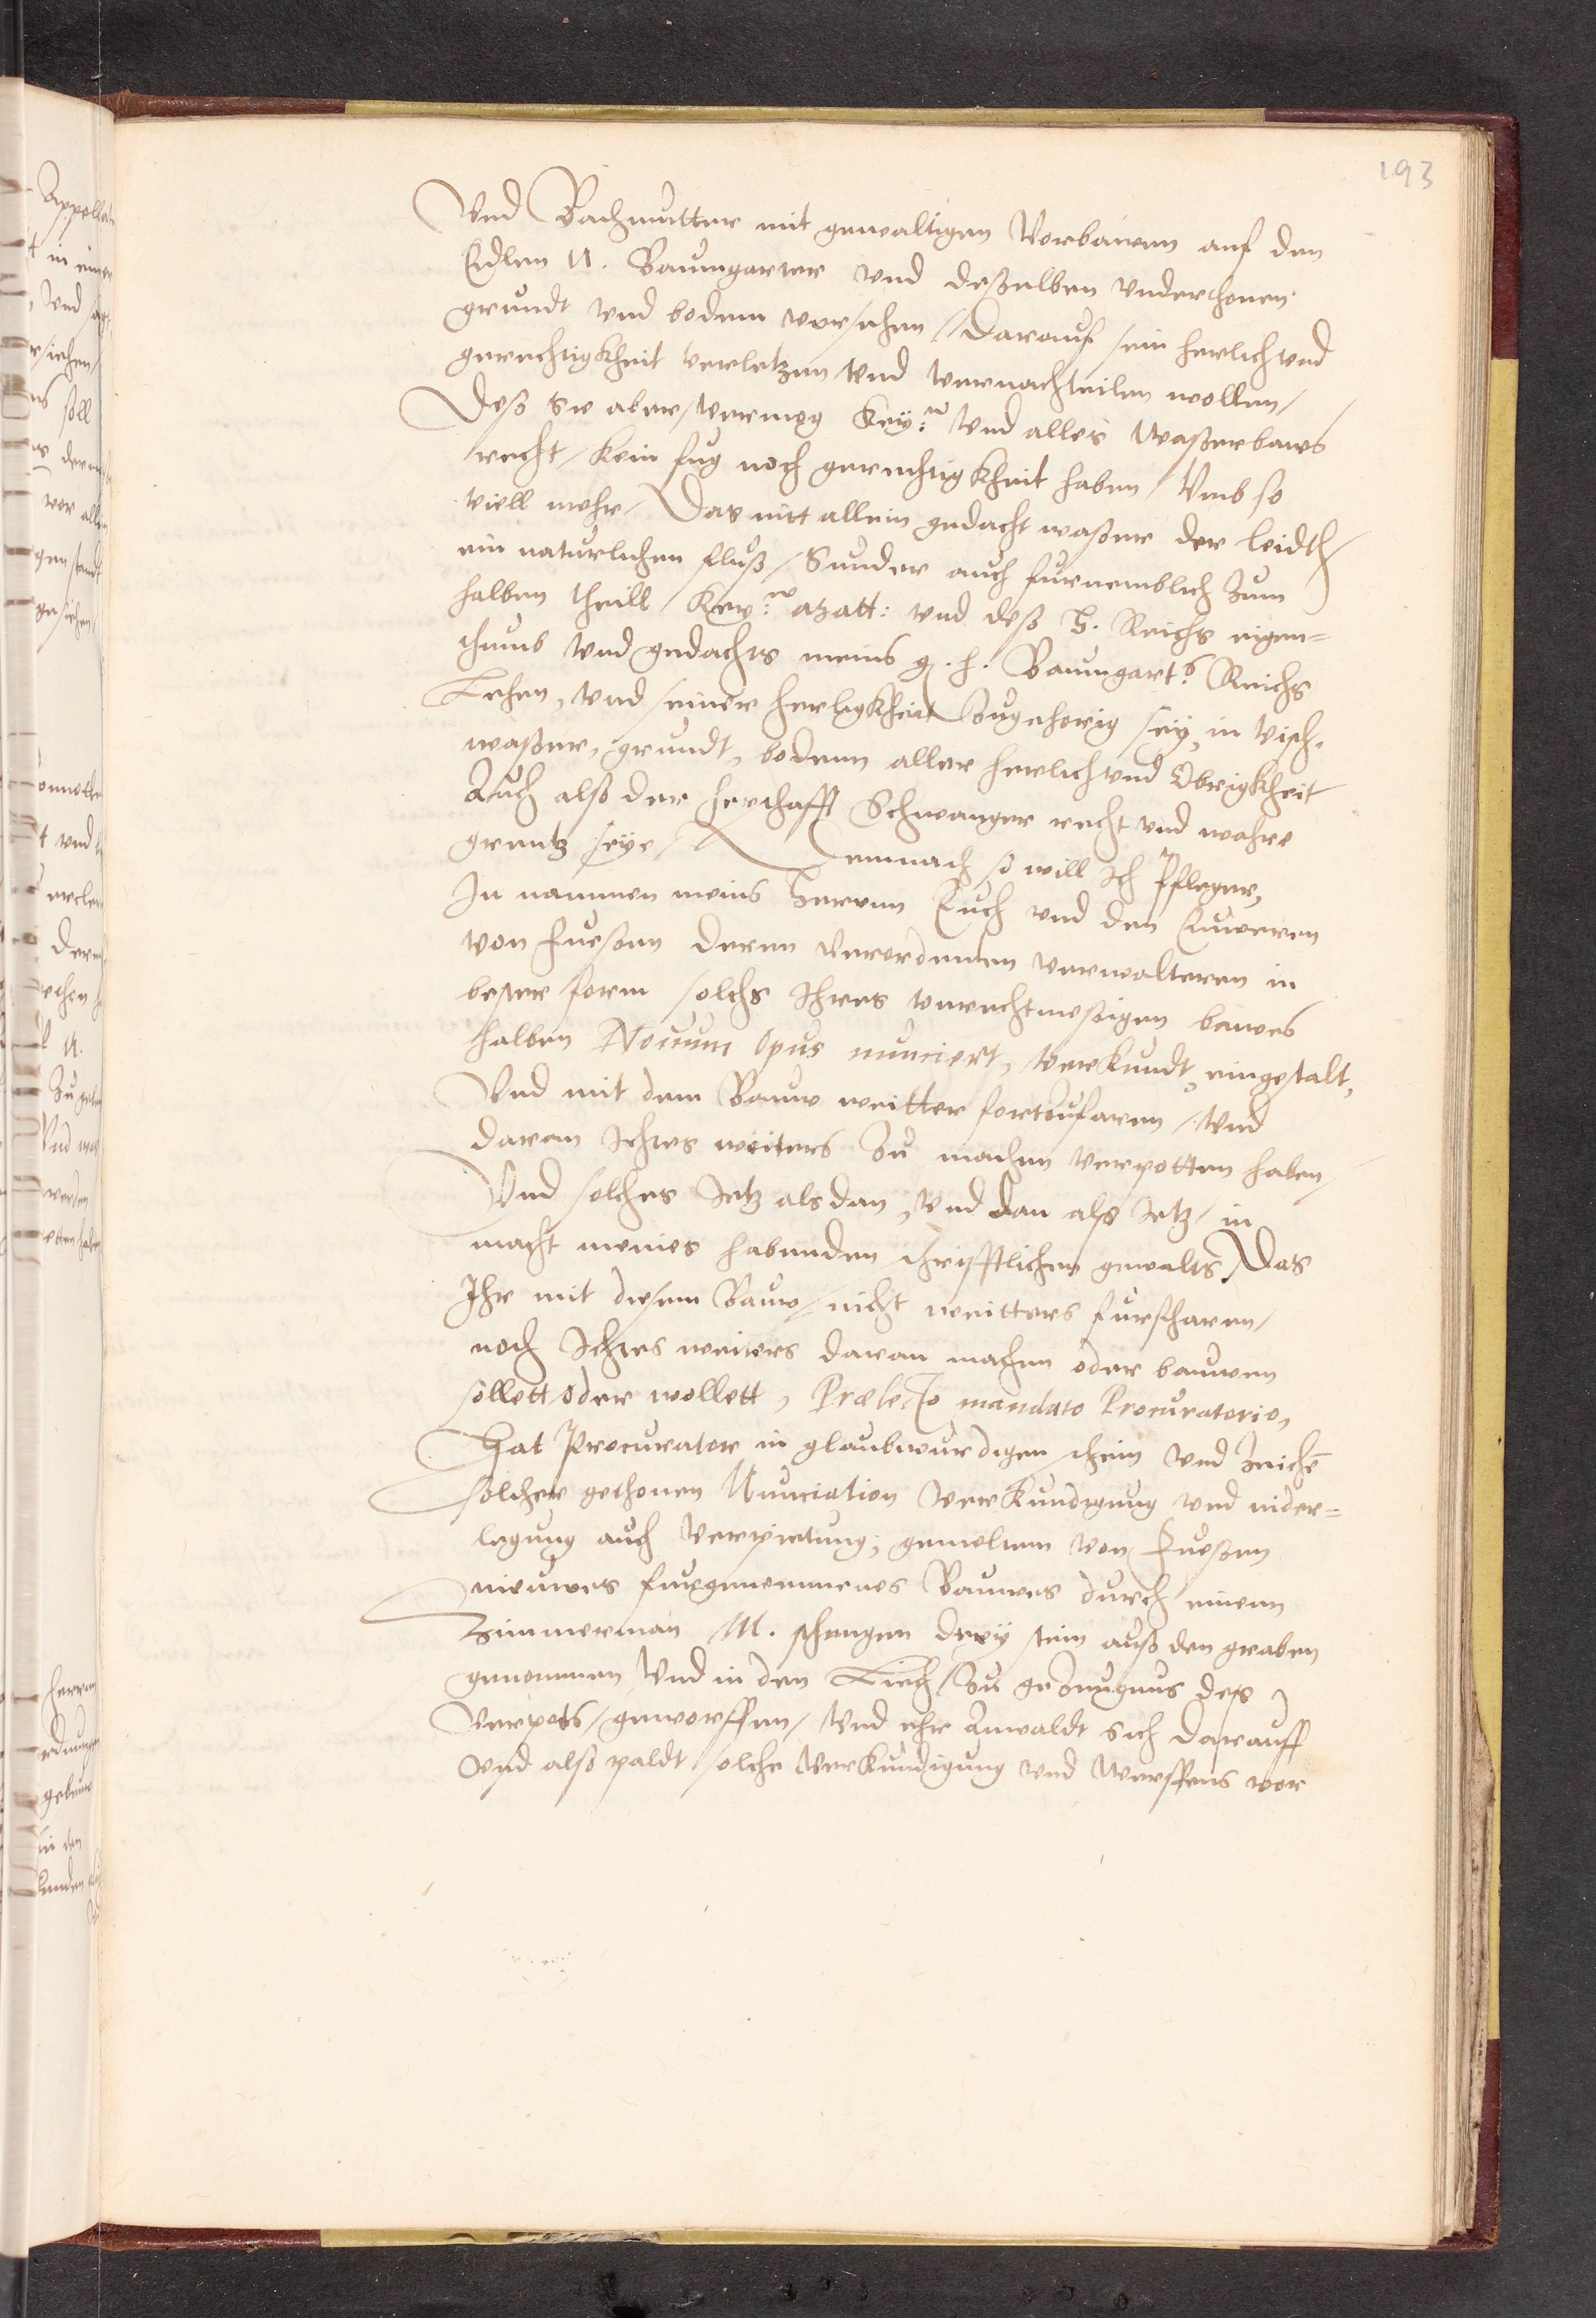 193
Vnd Bachmutter mit gewaltigen Vorbäwen auf den
Edlen N. Baumgarter vnd deßelben vnderthonen
grundt vnd bodem versehen / darauf sein herlich vnd
gerechtigkheit verletzen vnd vernachteilen wollen /
Deß Sie aber / vermög Key: vnd alles Waßerbaws
recht / kein fug noch gerechtigkheit haben / Vmb so
viell mehr / Das nitt allein gedacht waßer der leidth /
ein naturlichen fluß / Sunder auch furnemblich Zum
halben theill / Key: Matt: vnd deß H. Reichs eigen=
thumb vnd gedachts meins g. h. Baumgart: Reichs
Lehen, vnd seiner herligkheit Zugehorig sey, in Visch,
waßer, grundt, bodem aller herlich vnd Obrigkheit
Auch alß der herschafft Schwangen recht vnd wahre
grentz seye / Demnach so will Ich Pfleger,
In nammen meins Herrnn Euch vnd den Eweren
von Fueßen deren Verordenten verwalteren in
bester form solchs Ihres vnrechtmeßigen bawes
halben Novum Opus nunciert, verkundt, eingestalt,
Vnd mit dem Bauw weitter fortzufaren / Vnd
daran Ichtes weiters Zu machen verpotten haben /
Vnd solches Jetz als dan, vnd dan als Jetz / in
macht meines habenden schrifftlichen gewalts, Das
Ihr mit disem Bauw / nicht weitters furfharen /
noch Ichtes weiters daran machen oder bauwen
sollett oder wollett, Prælecto mandato Procuratorio,
Hat Procurator in glaubwurdigen schein vnd Zeichē
solcher gethonen Nunciation Verkundigung vnd nider=
legung auch Verpietung, gemelten von Fueßen
nieuwes furgenommenes Bauwes durch einenn
Zimmerman M. schangen drey stein auß den graben
genommen Vnd in den Liech / Zu gezeugnus des
Verpots / geworffen / Vnd ehr Anwaldt sich darauff
Vnd alß paldt solche Verkundigung vnd Werffens vor